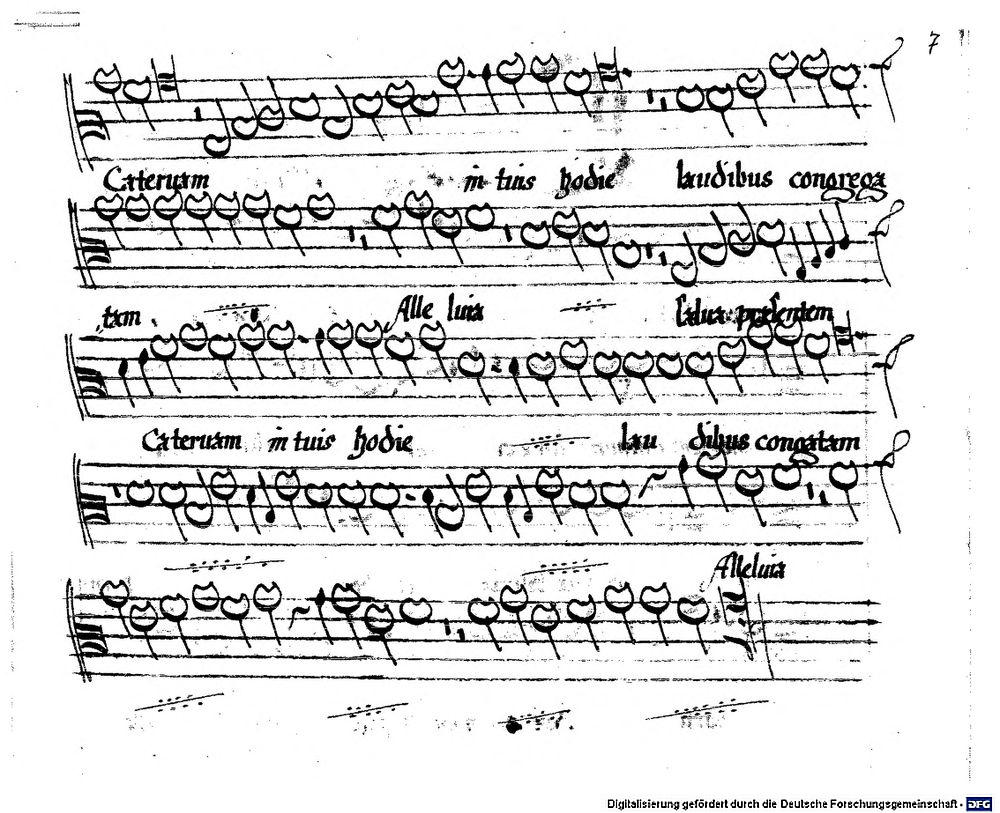 7
Cateruam in tuis hodie laudibus congrega
tam Alle luia salua præsentem
Cateruam in tuis hodie lau dibus congatam
Alleluia
Digitalisierung gefördert durch die Deutsche Forschungsgemeinschaft - DFG